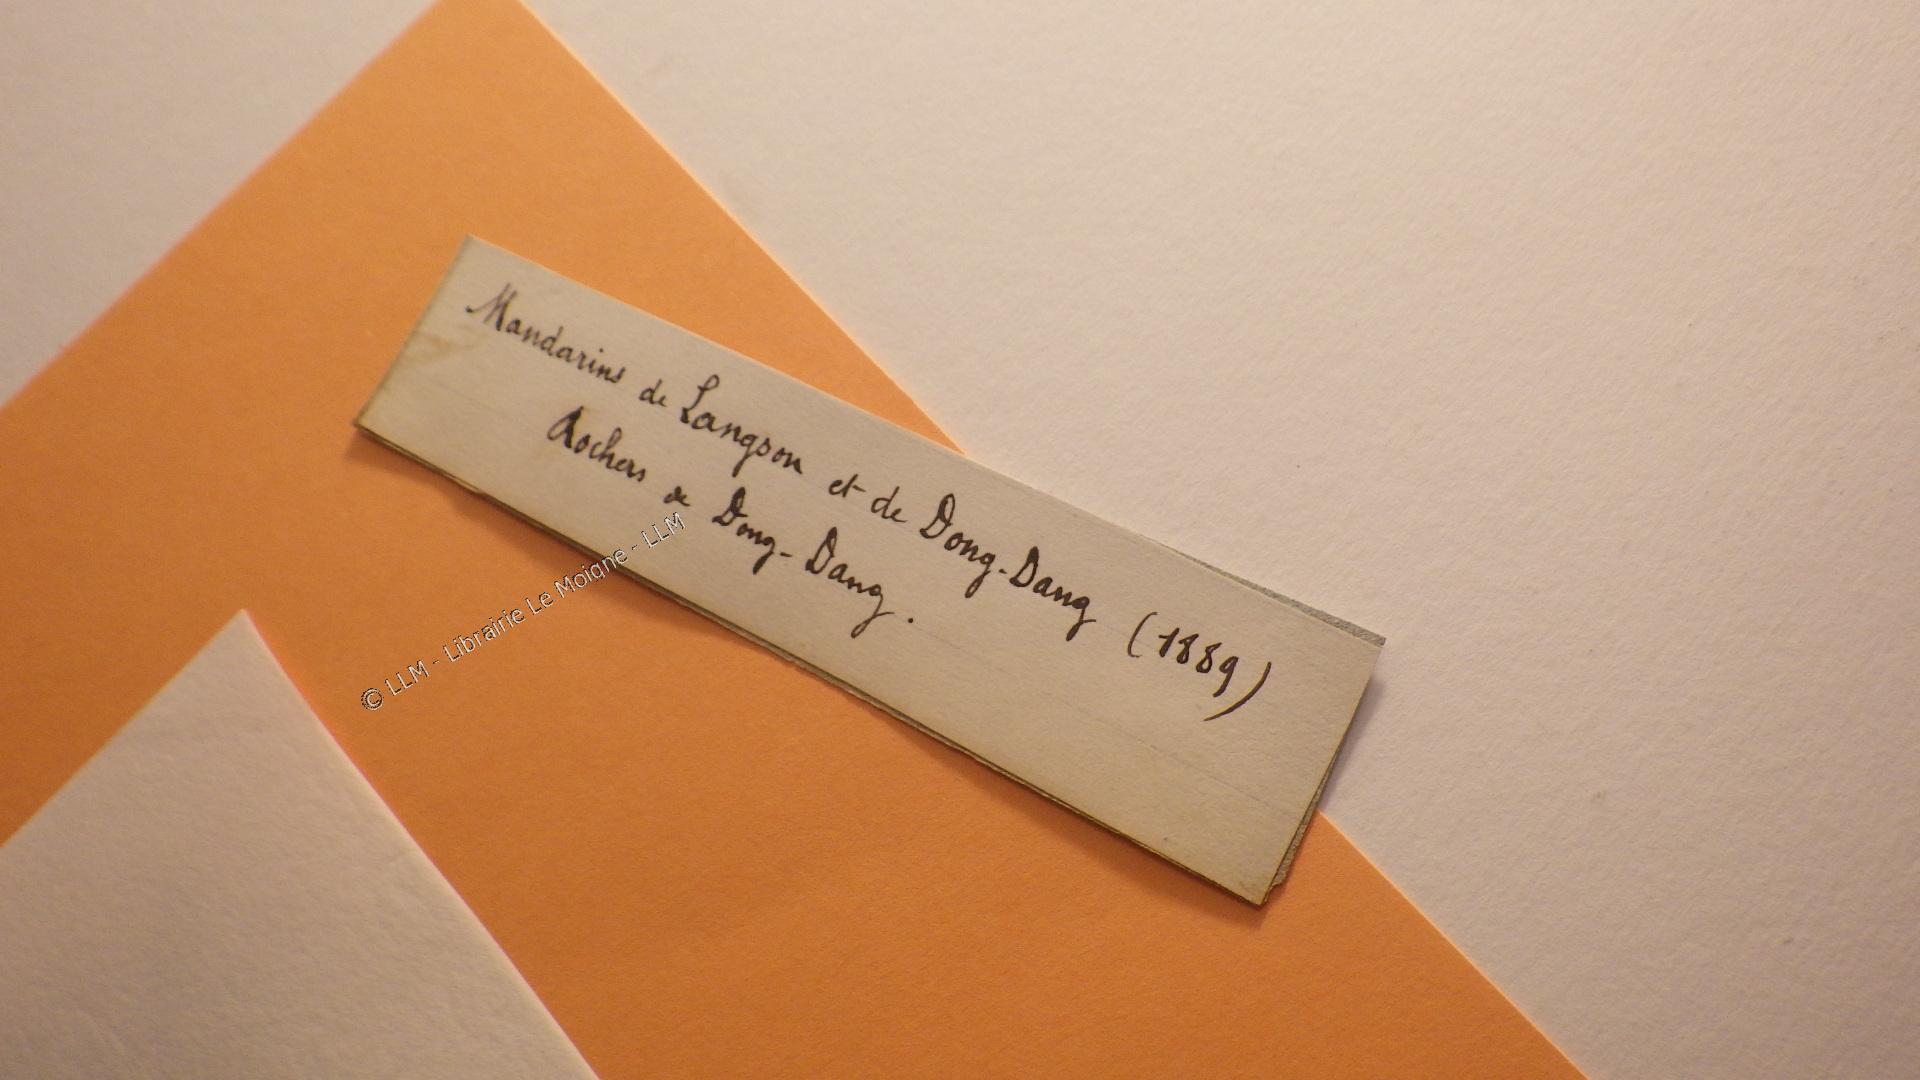 Mandarins de Langson et de Dong-Dang (1889)
Rochers de Dong-Dang.
© LLM - Librairie Le Moigne - LLM